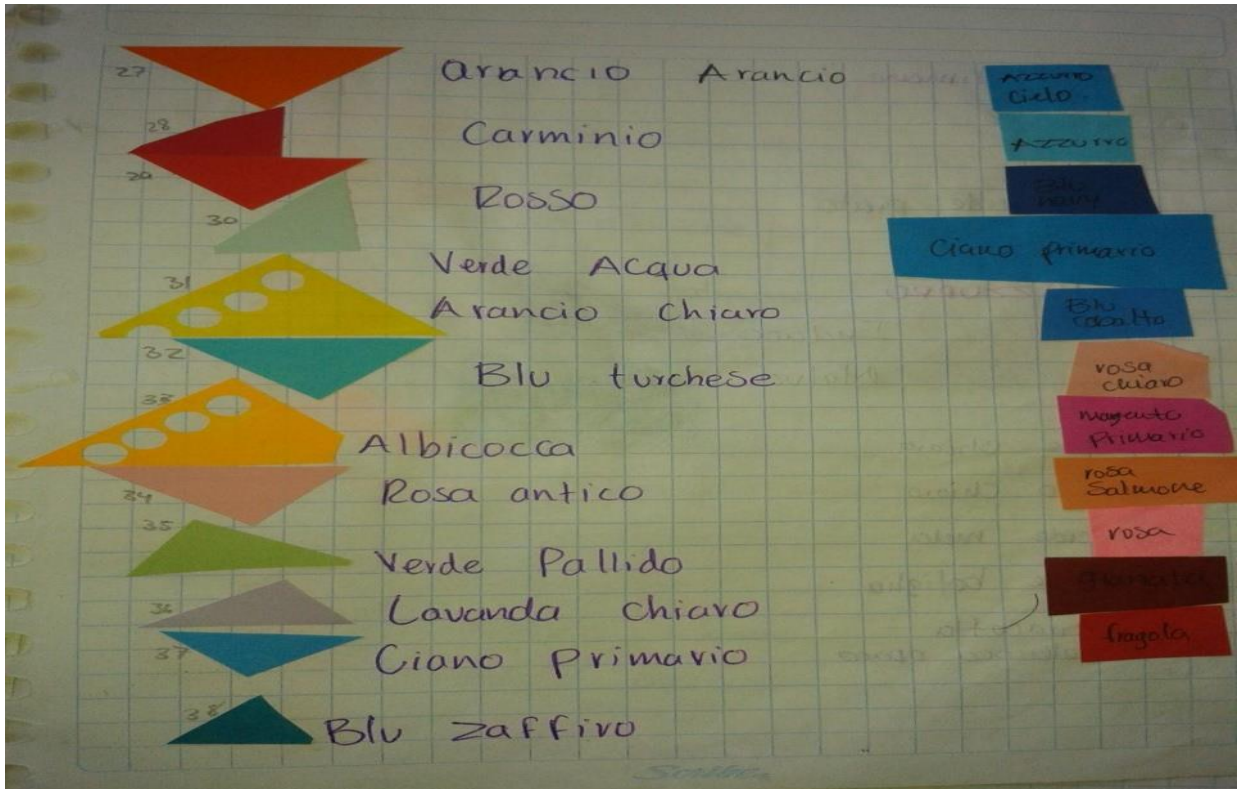 27 arancio Arancio
28 Carminio
29 Rosso
30 Verde Acqua
31 Arancio Chiaro
32 Blu turchese
33 Albicocca
34 Rosa antico
35 Verde Pallido
36 Lavanda chiaro
37 Ciano Primario
38 Blu zaffiro
Azzurro
Cielo
Azzurro
Blu
navy
Ciano primario
Blu
Cobalto
rosa
chiaro
magenta
Primario
rosa
Salmone
rosa
granata
fragola